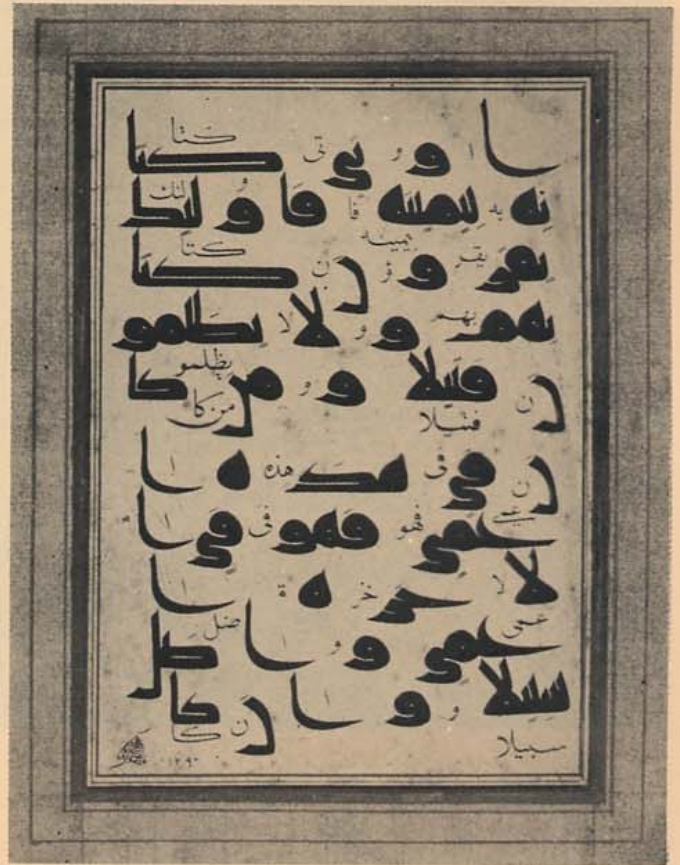 ا و تى كتا
به بيمينه فا و لئك
يقر ؤ ن كتا
بهم و لا يظلمو
ن فتيلا و من كا
ن فى هذه ا
عمى فهو فى ا
لا خر ة ا
عمى و ا ضل
سبيلا و ا ن كا
١٢٩٠